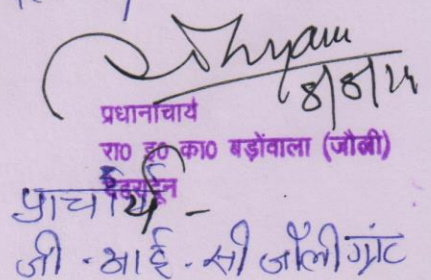 प्रधानाचार्य
रा० इ० का० बड़ोंवाला (जौली)
देहरादून
प्राचार्य -
जी . आई . सी जौली ग्रांट